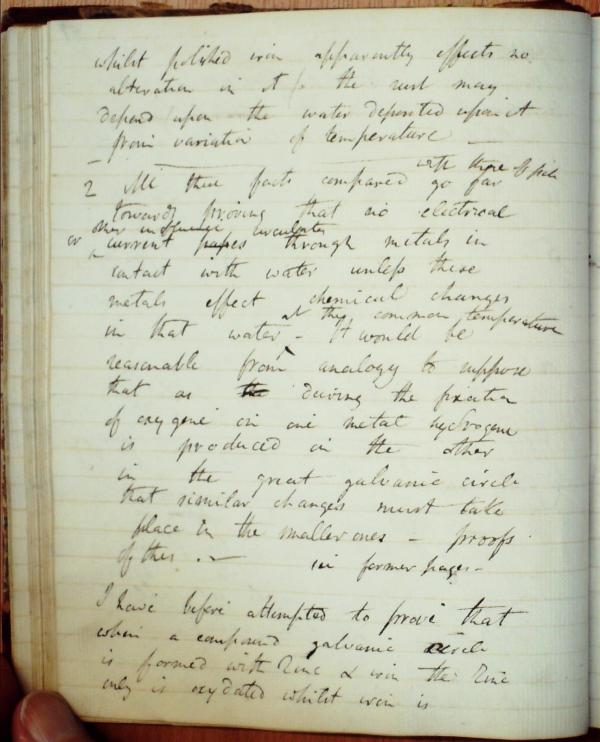 whilst polished iron apparently effects no
alteration in it / the rust may
depend upon the water deposited upon it
from variation of temperature —
with those of pile
2 All these facts compared go far
towards proving that no electrical
or other influence circulates
current passes through metals in
contact with water unless these
metals effect chemical changes
at the common temperature
in that water - It would be
reasonable from analogy to suppose
that as the during the fixation
of oxygene in one metal hydrogene
is produced in the other
in the great galvanic circle
that similar changes must take
place in the smaller ones - proofs
of this. — in former pages -
I have before attempted to prove that
when a compound galvanic circle
is formed with Zinc & iron the Zinc
only is oxydated whilst iron is